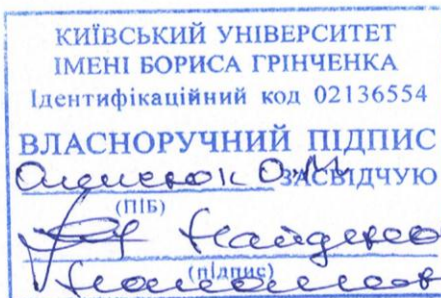 КИЇВСЬКИЙ УНІВЕРСИТЕТ
ІМЕНІ БОРИСА ГРІНЧЕНКА
Ідентифікаційний код 02136554
ВЛАСНОРУЧНИЙ ПІДПИС
ЗАСВІДЧУЮ
(ПІБ)
(підпис)